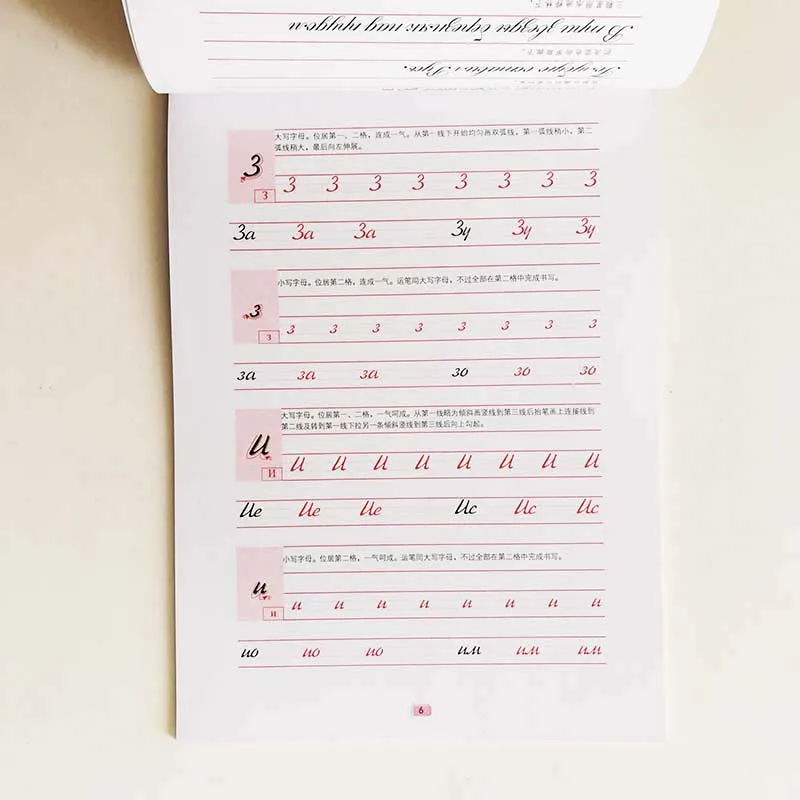 Голубую оставил Русь.
В три звезды березняк над прудом
大写字母。位居第一、二格，连成一气。从第一线下开始均匀画双弧线，第一弧线稍小，第二
弧线稍大，最后向左伸展。
З
З
З З З З З З З З
За За За Зу Зу Зу
小写字母。位居第二格，连成一气。运笔同大写字母，不过全部在第二格中完成书写。
з
з
з з з з з з з з
за за за зо зо зо
大写字母。位居第一、二格，一气呵成。从第一线略为倾斜画竖线到第三线后抬笔画上连接线到
第二线及转到第一线下拉另一条倾斜竖线到第三线后向上勾起。
И
И
И И И И И И И И
Ие Ие Ие Ис Ис Ис
小写字母。位居第二格，一气呵成。运笔同大写字母，不过全部在第二格中完成书写。
и
и
и и и и и и и и
ио ио ио им им им
6